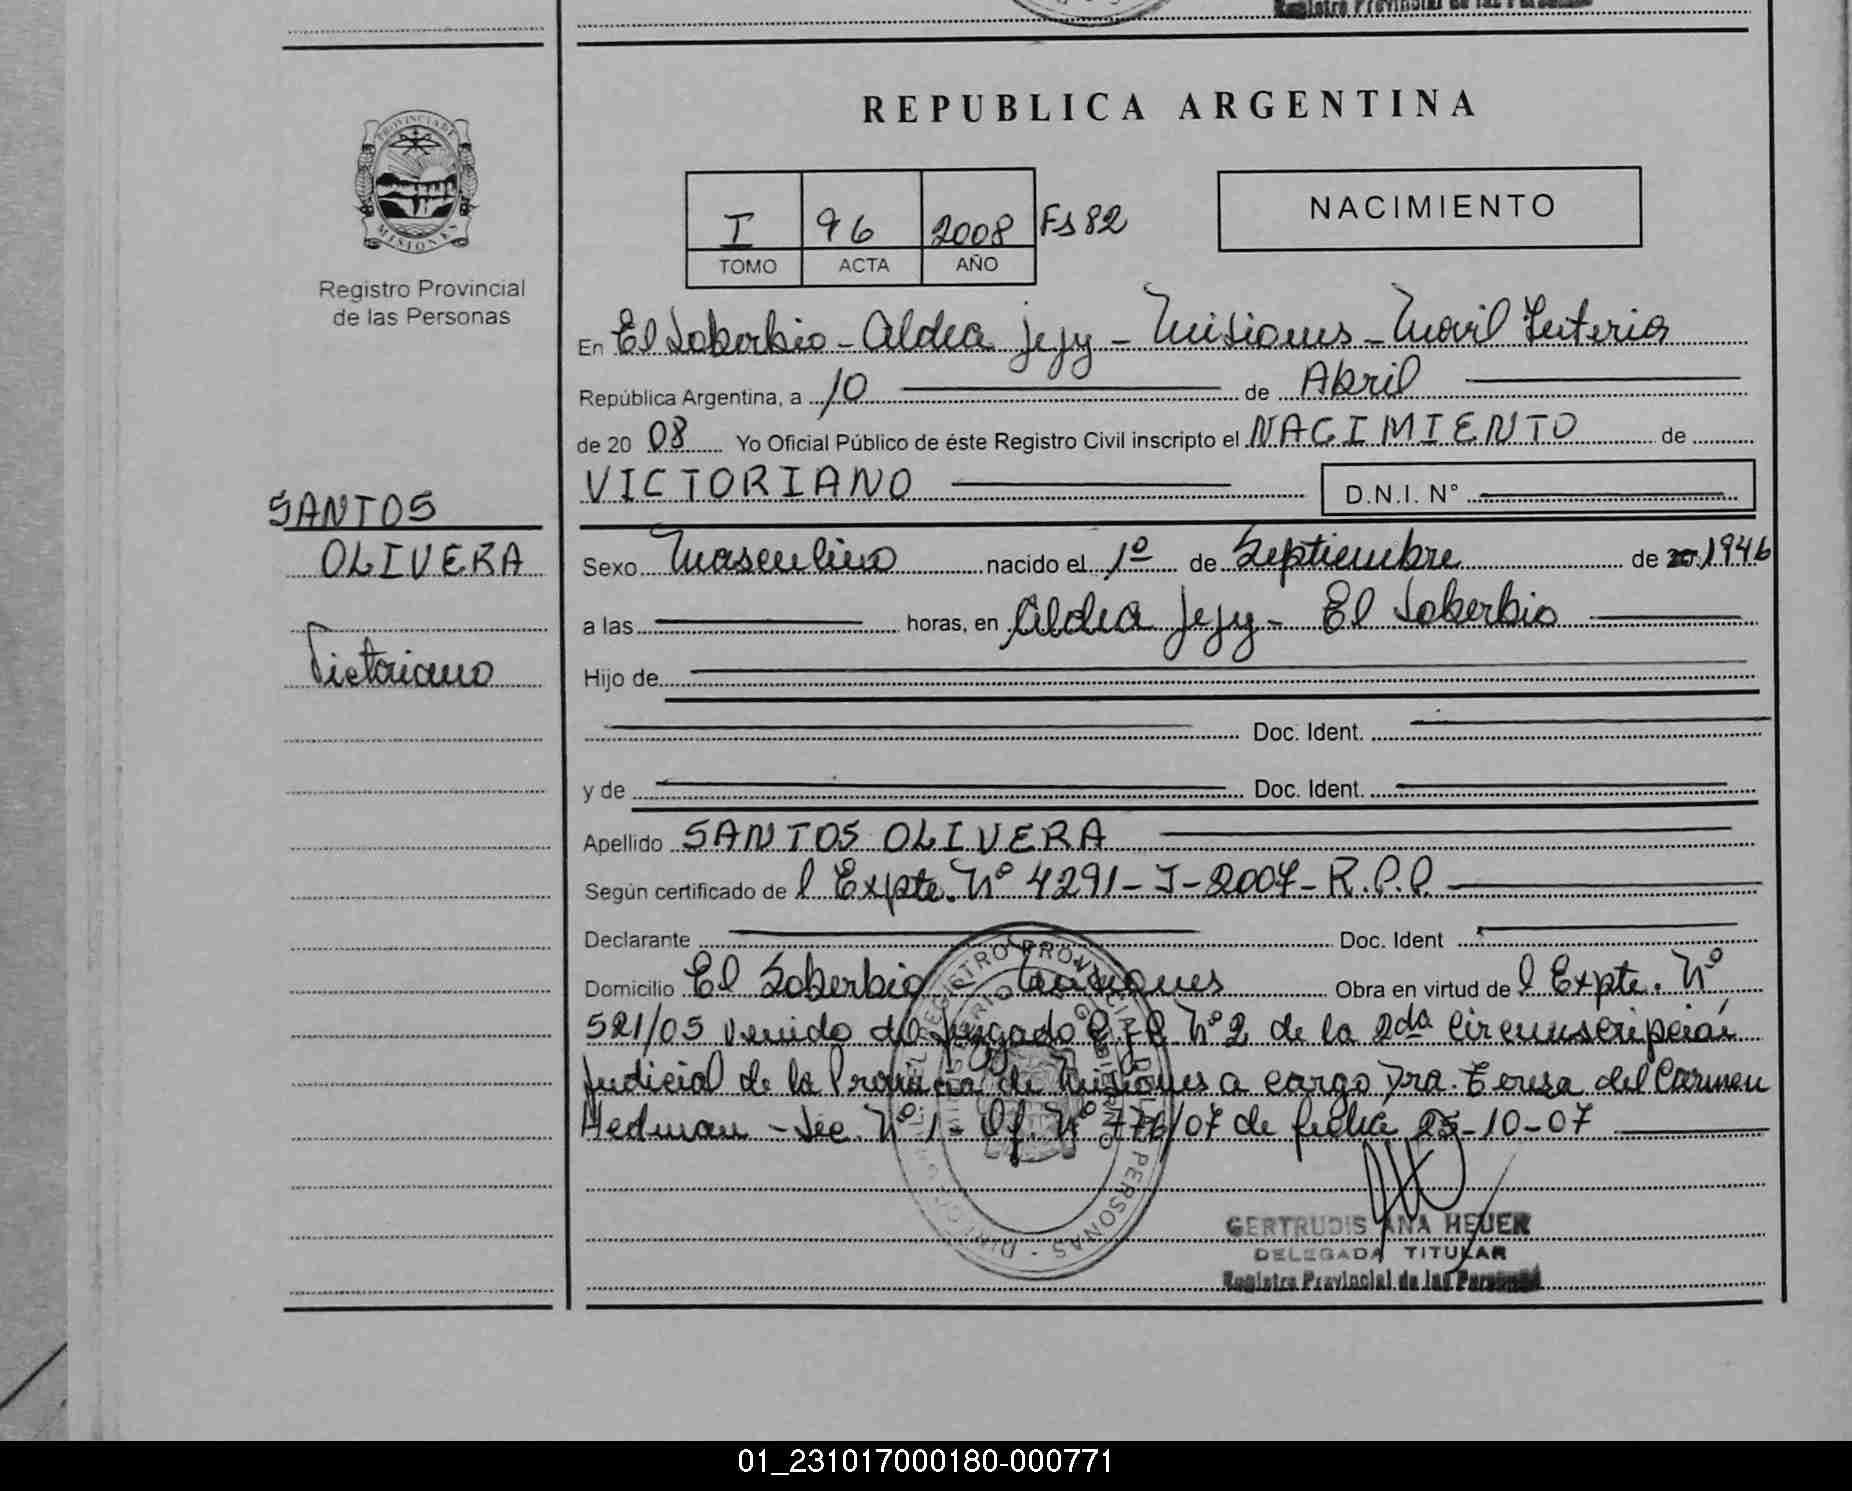 Registro Provincial de las Personas
REPUBLICA ARGENTINA
PROVINCIA DE
MISIONES
Registro Provincial
de las Personas
I 96 2008 Fs 82
TOMO ACTA AÑO
NACIMIENTO
En El Soberbio - Aldea Jejy - Misiones - Movil Interior
República Argentina, a 10 de Abril
de 20 08 Yo Oficial Público de éste Registro Civil inscripto el NACIMIENTO de
VICTORIANO D.N.I. N°
SANTOS
OLIVERA
Victoriano
Sexo Masculino nacido el 1º de Septiembre de 20 1946
a las horas, en Aldea Jejy - El Soberbio
Hijo de
Doc. Ident.
y de Doc. Ident.
Apellido SANTOS OLIVERA
Según certificado de l Expte. Nº 4291-J-2007-R.P.P.
Declarante Doc. Ident
Domicilio El Soberbio Misiones Obra en virtud de l Expte. Nº
521/05 venido del Juzgado C. y C. Nº 2 de la 2da Circunscripción
Judicial de la Provincia de Misiones a cargo Dra. Teresa del Carmen
Hedman - Sec. Nº 1 - Of. Nº 776/07 de fecha 25-10-07
REGISTRO PROVINCIAL DE LAS PERSONAS
GERTRUDIS ANA HEUER
DELEGADA TITULAR
Registro Provincial de las Personas
01_231017000180-000771